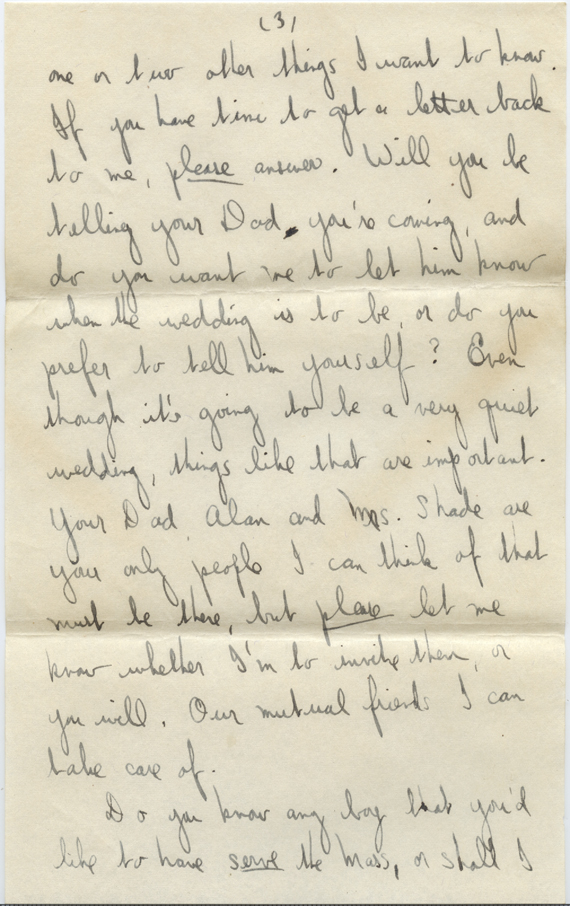 (3)
one or two other things I want to know.
If you have time to get a letter back
to me, please answer. Will you be
telling your Dad you're coming, and
do you want me to let him know
when the wedding is to be, or do you
prefer to tell him yourself? Even
though it's going to be a very quiet
wedding, things like that are important.
Your Dad, Alan and Mrs. Shade are
your only people I can think of that
must be there, but please let me
know whether I'm to invite them, or
you will. Our mutual friends I can
take care of.
Do you know any boy that you'd
like to have serve the Mass, or shall I